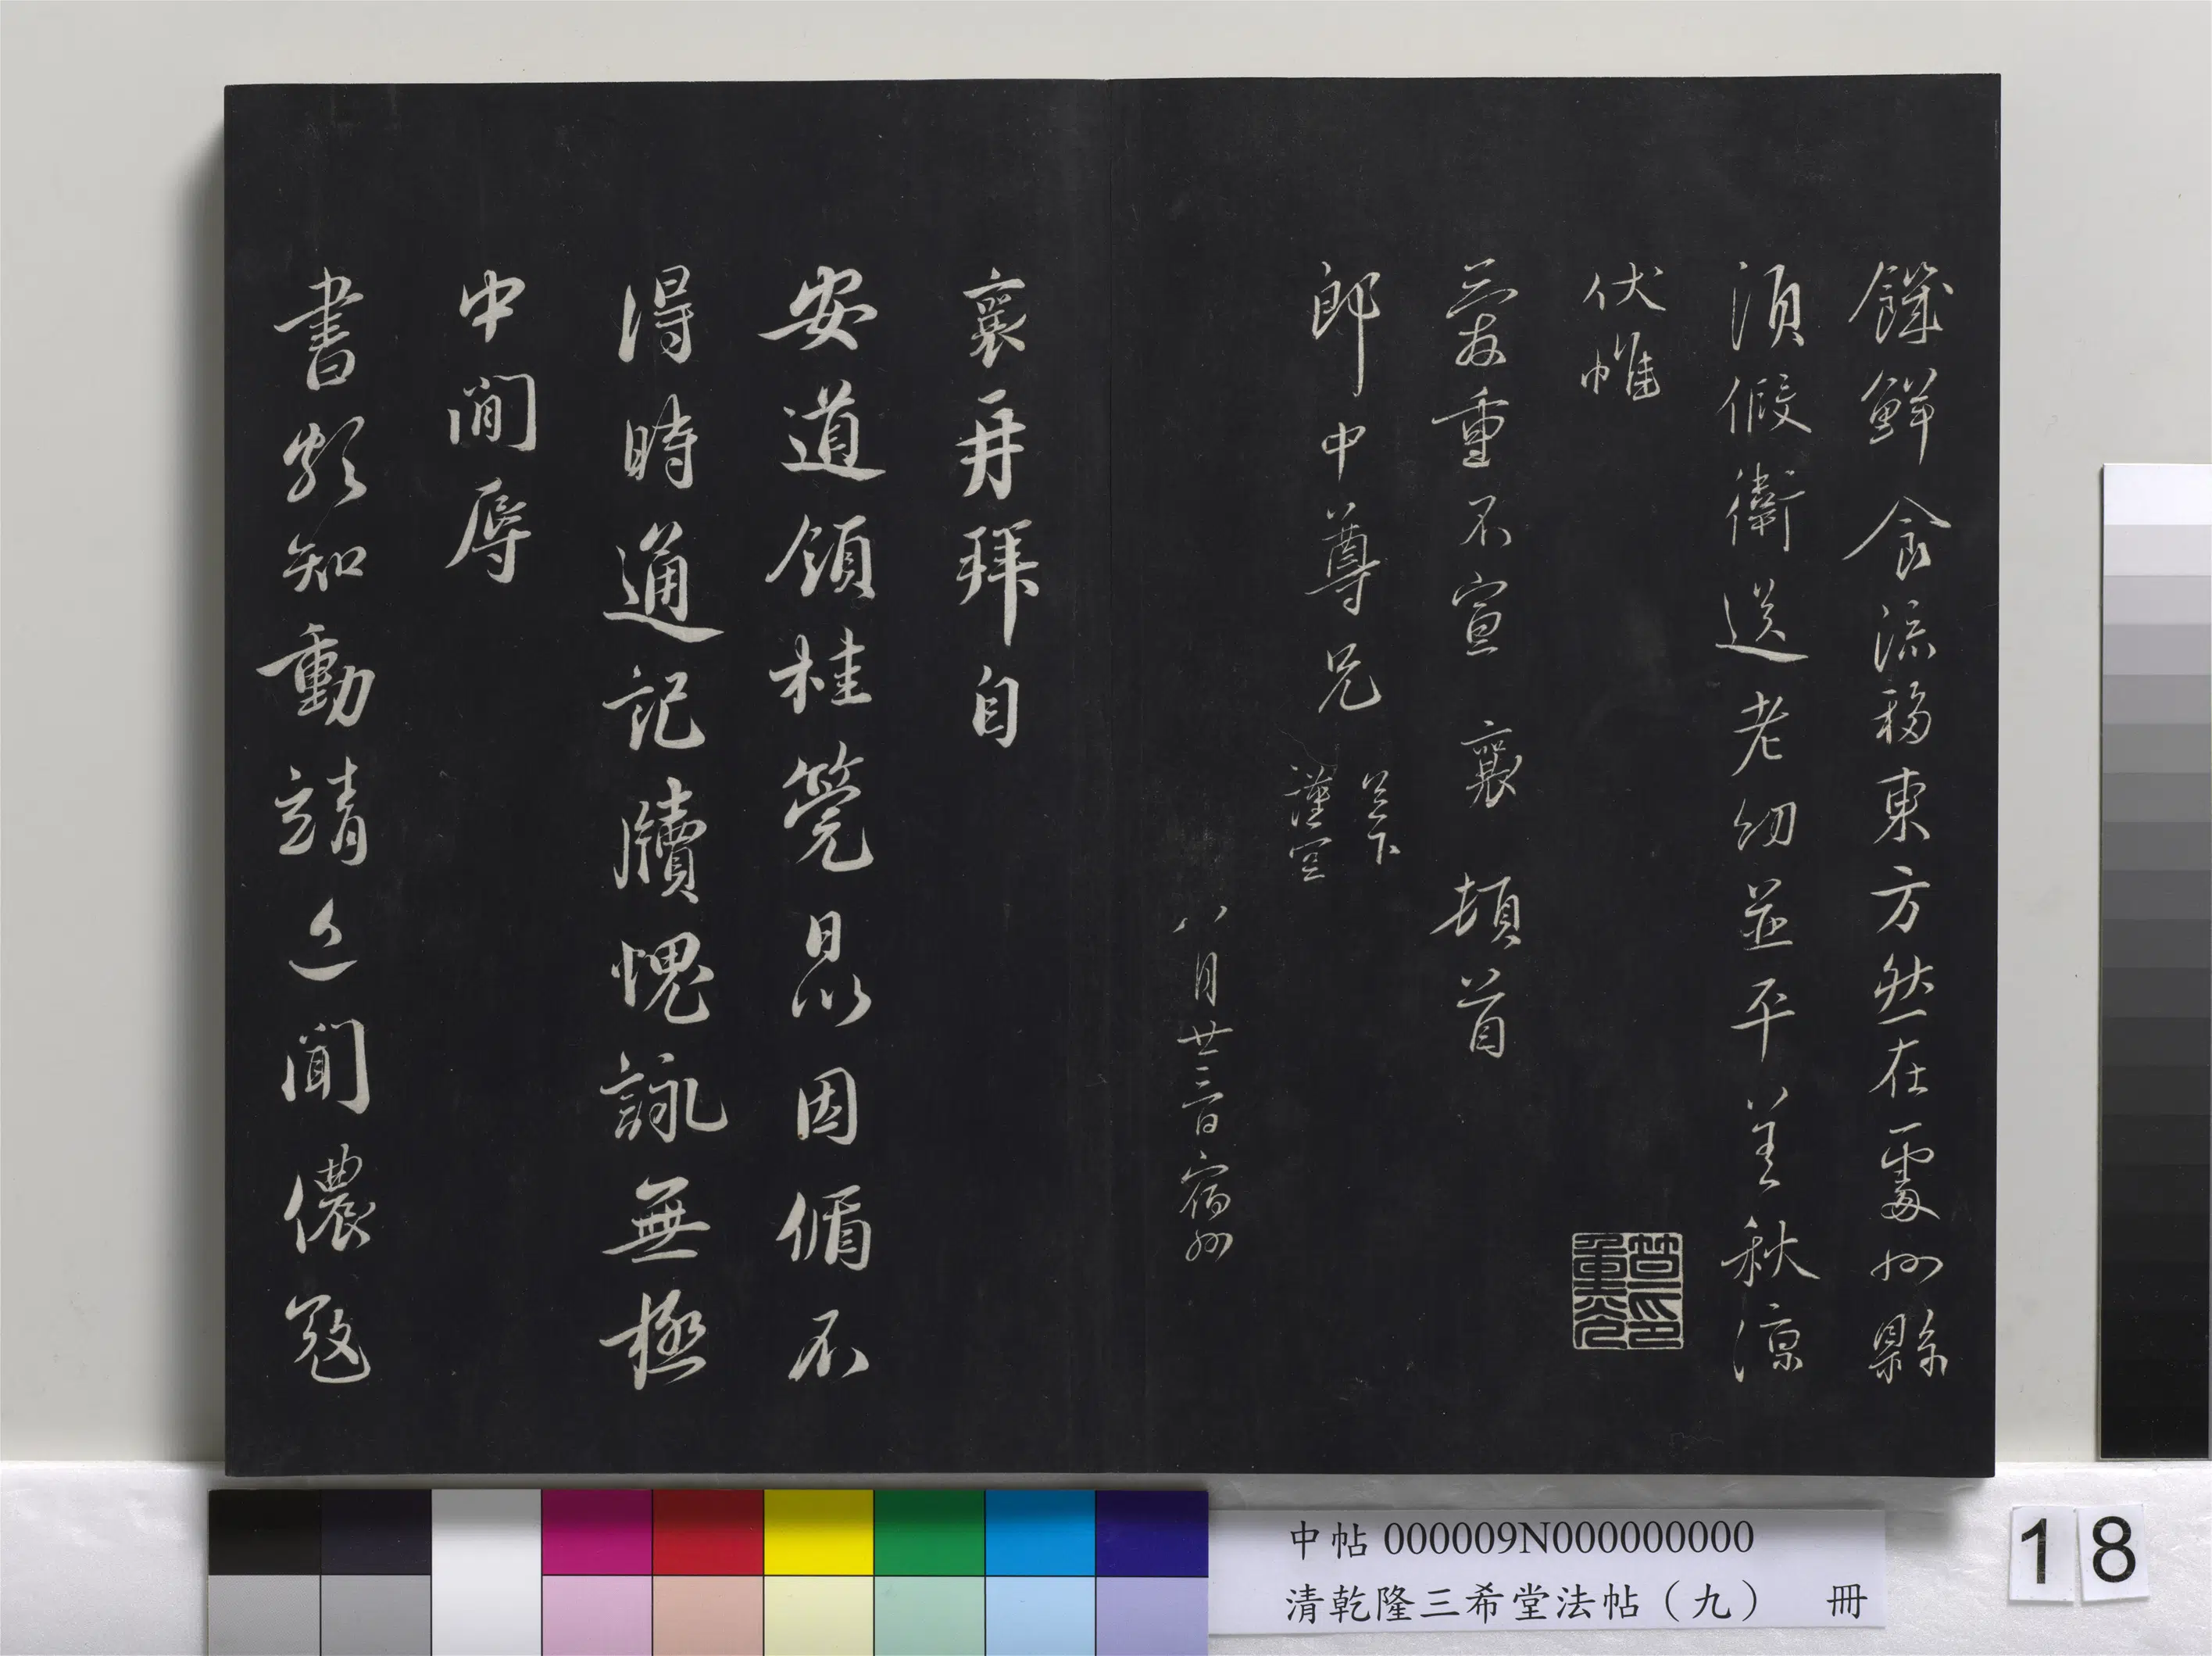 饑鮮食流移東方然在處州縣
須假衛送老幼並平善秋涼
伏惟
愛重不宣 襄 頓首
郎中尊兄
足下
謹空
八月廿三日宿州
襄再拜自
安道領桂筦最以因循不
得時通記牘愧詠無極
中間辱
書頗知動靖近聞儂寇
中帖 000009N000000000
清乾隆三希堂法帖（九） 冊
18